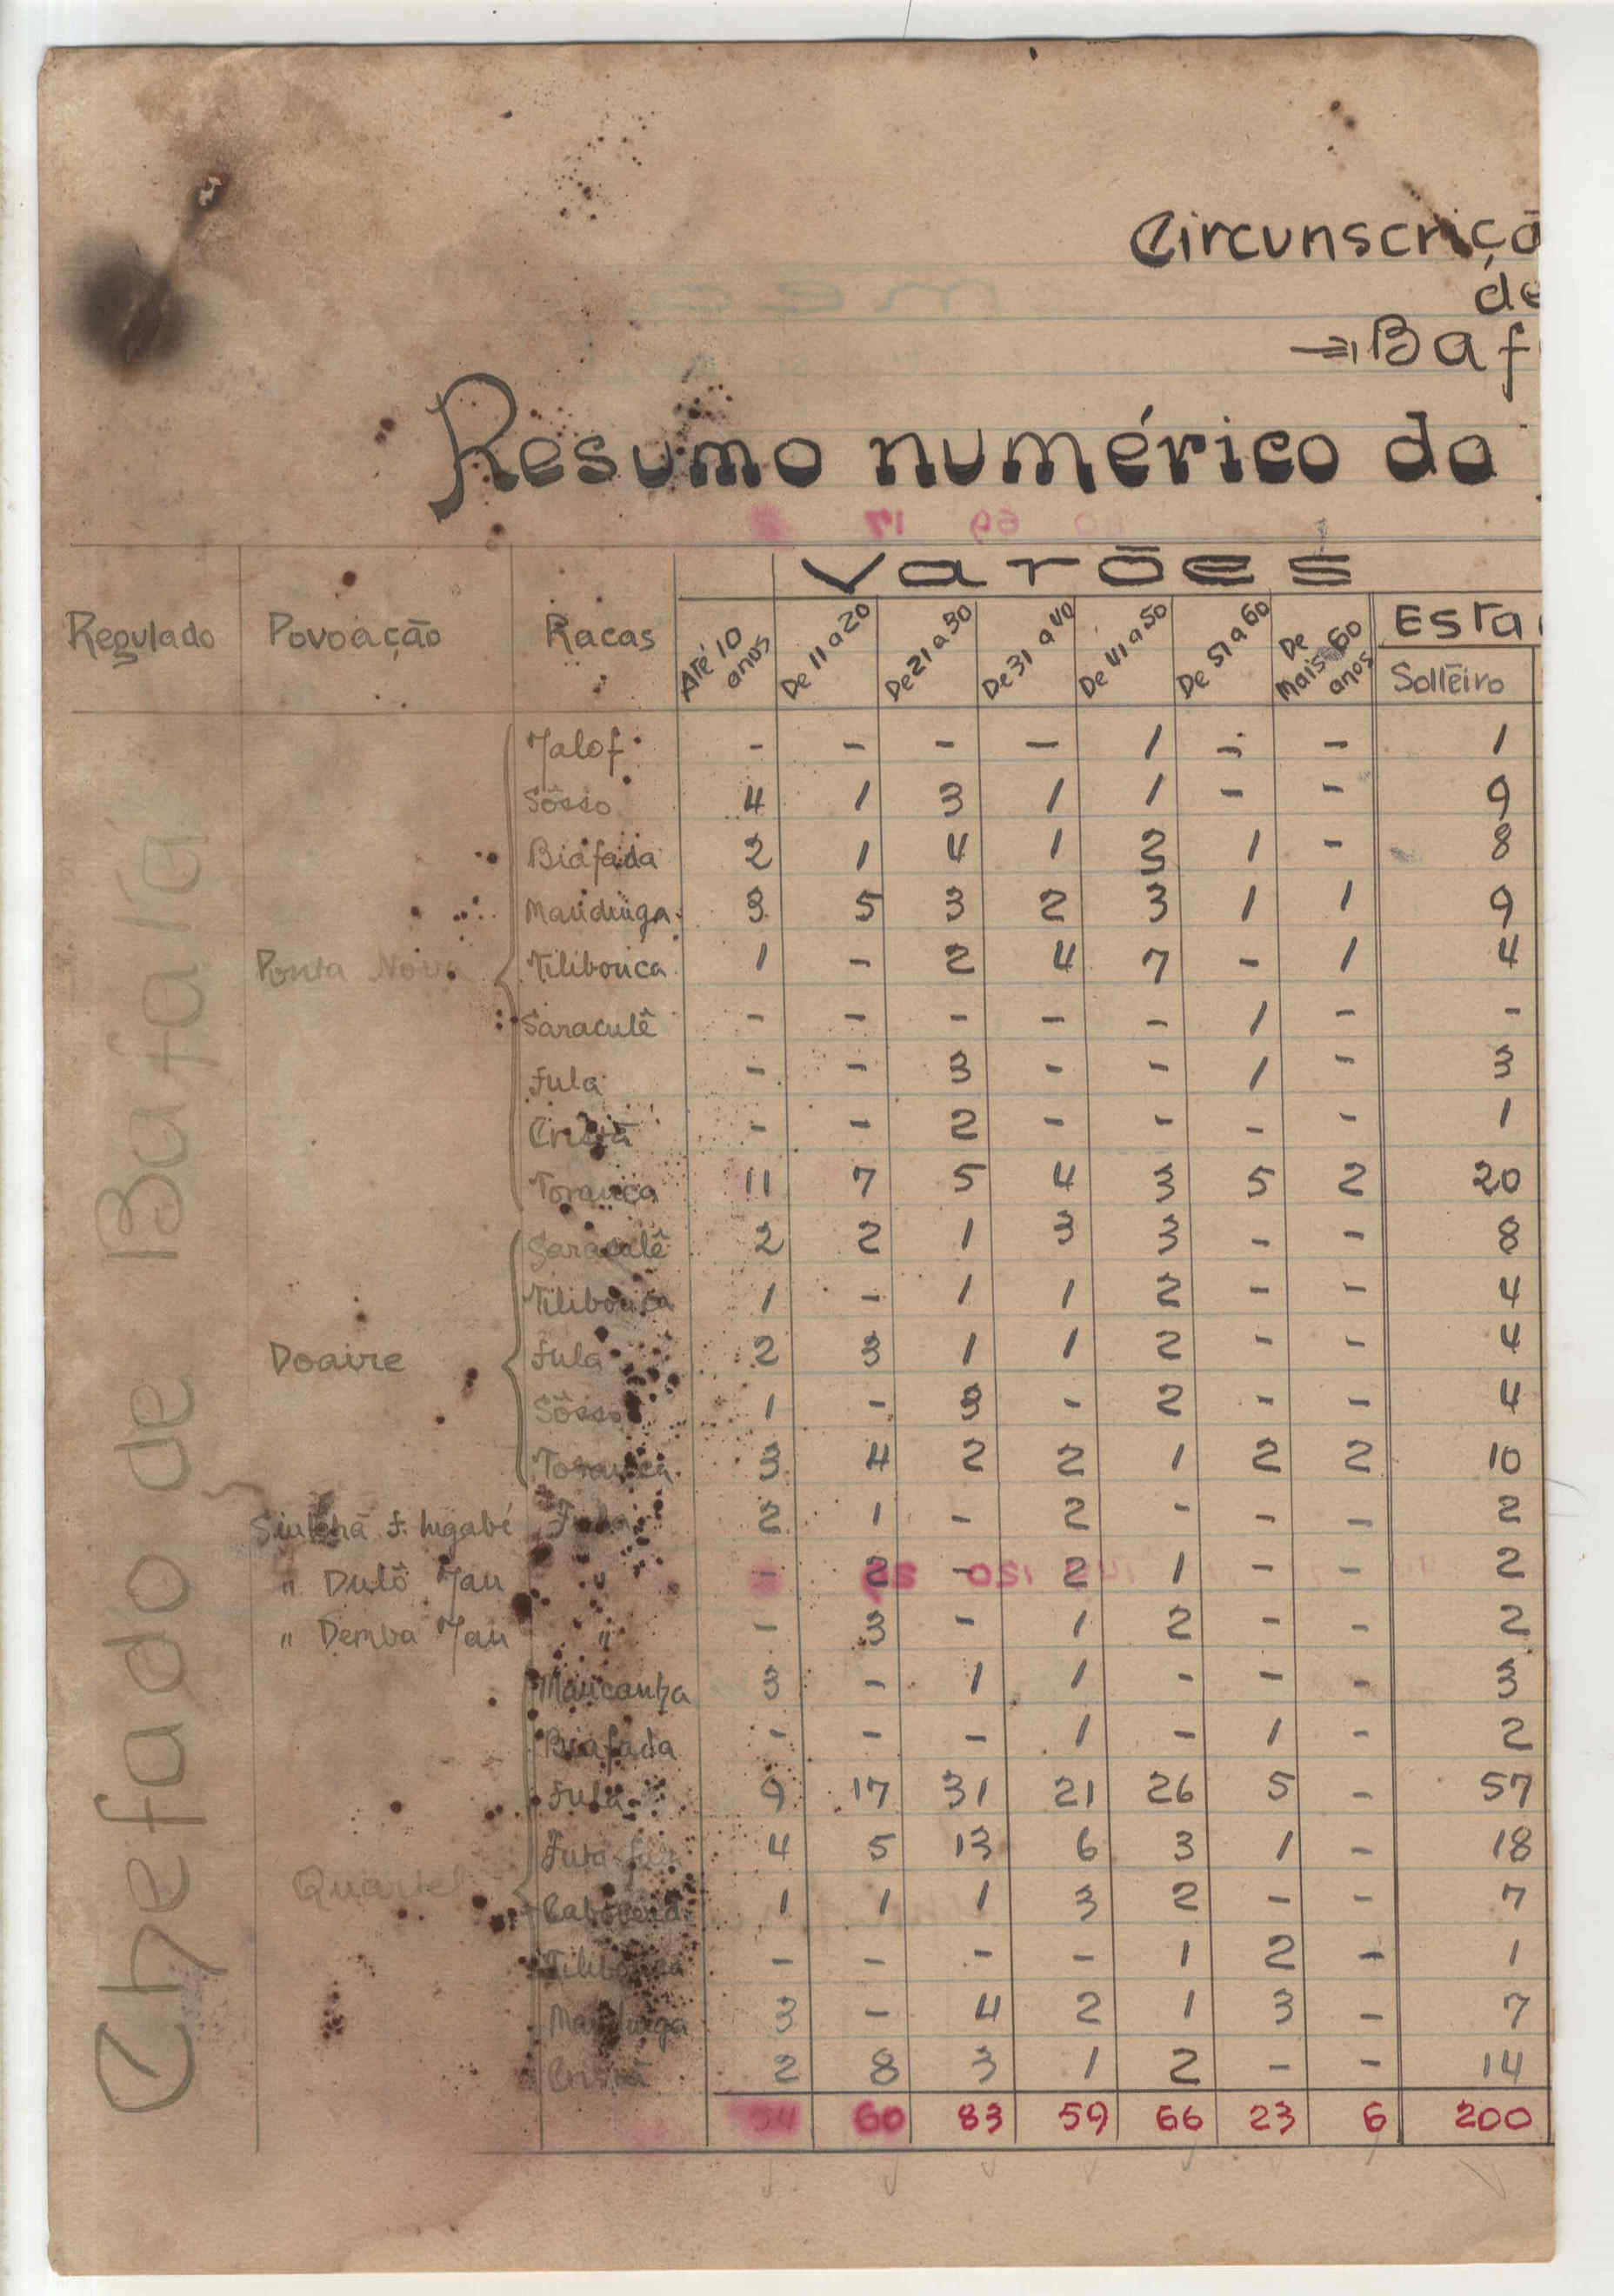 Circunscriçã
de
Baf
Resumo numérico da
Varões
Regulado Povoação Racas Até 10 anos De 11 a 20 De 21 a 30 De 31 a 40 De 41 a 50 De 51 a 60 De Mais 60 anos Esta
Solteiro
Chefado de Bafatá
Jalof - - - - 1 - - 1
Sôsso 4 1 3 1 1 - - 9
Biafada 2 1 4 1 2 1 - 8
Mandinga 3 5 3 2 3 1 1 9
Ponta Nova Tilibonca 1 - 2 4 7 - 1 4
Saraculê - - - - - 1 - -
Fula - - 3 - - 1 - 3
Cristã - - 2 - - - - 1
Toranca 11 7 5 4 3 5 2 20
Saraculê 2 2 1 3 3 - - 8
Tilibonca 1 - 1 1 2 - - 4
Doaire Fula 2 3 1 1 2 - - 4
Sôsso 1 - 3 - 2 - - 4
Toranca 3 4 2 2 1 2 2 10
Sintchã F. lugabé Fula 2 1 - 2 - - - 2
" Dulô Jau " - 2 - 2 1 - - 2
" Demba Jau " - 3 - 1 2 - - 2
Mancanha 3 - 1 1 - - - 3
Biafada - - - 1 - 1 - 2
Fula 9 17 31 21 26 5 - 57
Quartel Fula 4 5 13 6 3 1 - 18
1 1 1 3 2 - - 7
Tilibonca - - - - 1 2 - 1
Mandinga 3 - 4 2 1 3 - 7
Cristã 2 8 3 1 2 - - 14
54 60 83 59 66 23 6 200